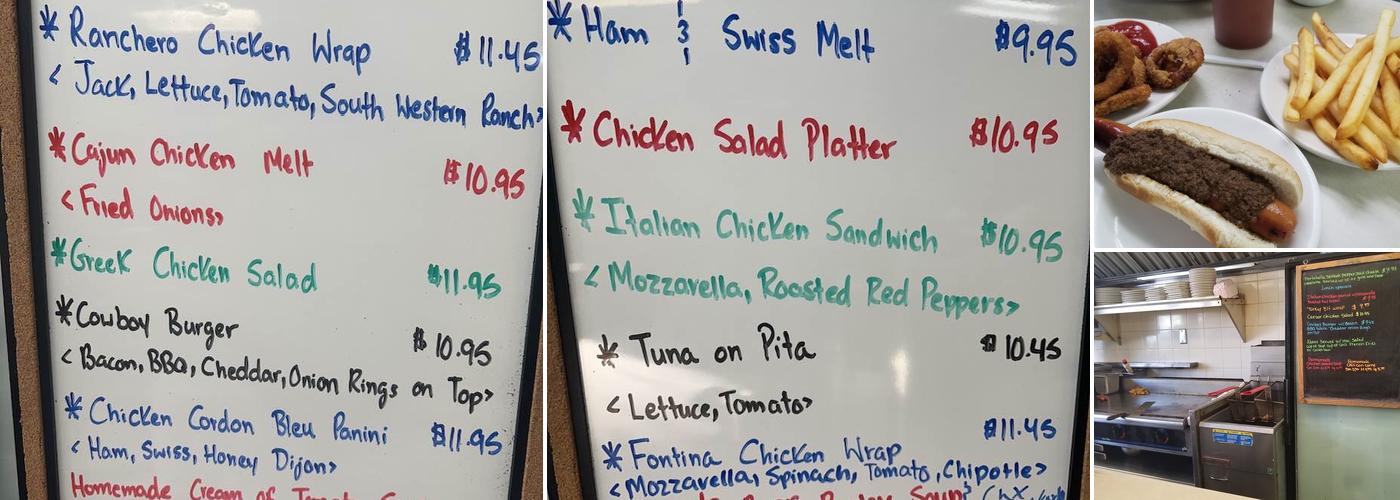 * Ranchero Chicken Wrap $11.45
< Jack, Lettuce, Tomato, South Western Ranch>
* Cajun Chicken Melt $10.95
< Fried Onions>
* Greek Chicken Salad $11.95
* Cowboy Burger $10.95
< Bacon, BBQ, Cheddar, Onion Rings on Top>
* Chicken Cordon Bleu Panini $11.95
< Ham, Swiss, Honey Dijon>
Homemade Cream of
* Ham & Swiss Melt $9.95
* Chicken Salad Platter $10.95
* Italian Chicken Sandwich $10.95
< Mozzarella, Roasted Red Peppers>
* Tuna on Pita $10.45
< Lettuce, Tomato>
* Fontina Chicken Wrap $11.45
< Mozzarella, Spinach, Tomato, Chipotle>
Soup
Lunch specials
Caesar Chicken Salad
Homemade